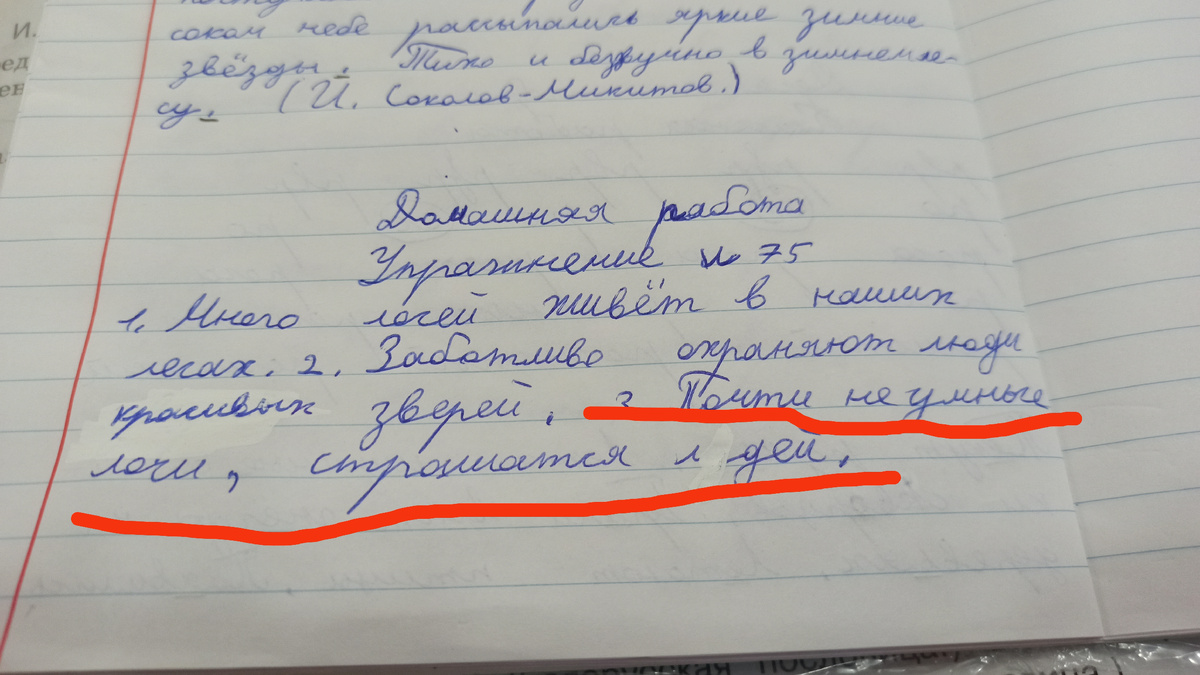 И.
соком небе рассыпались яркие зимние
звёзды. Тихо и безжучно в зимнем ле-
су. (И. Соколов-Микитов.)
Домашная работа
Упражнение № 75
1. Много лосей живёт в наших
лесах. 2. Заботливо охраняют люди
красивых зверей. 3 Почти не умные
лоси, страшатся л дей.